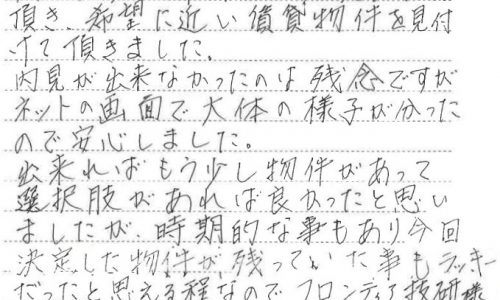 頂き、希望に近い賃貸物件を見付
けて頂きました。
内見が出来なかったのは残念ですが
ネットの画面で大体の様子が分った
ので安心しました。
出来ればもう少し物件があって
選択肢があれば良かったと思い
ましたが、時期的な事もあり今回
決定した物件が残っていた事もラッキー
だったと思える程なのでフロンティア技研様